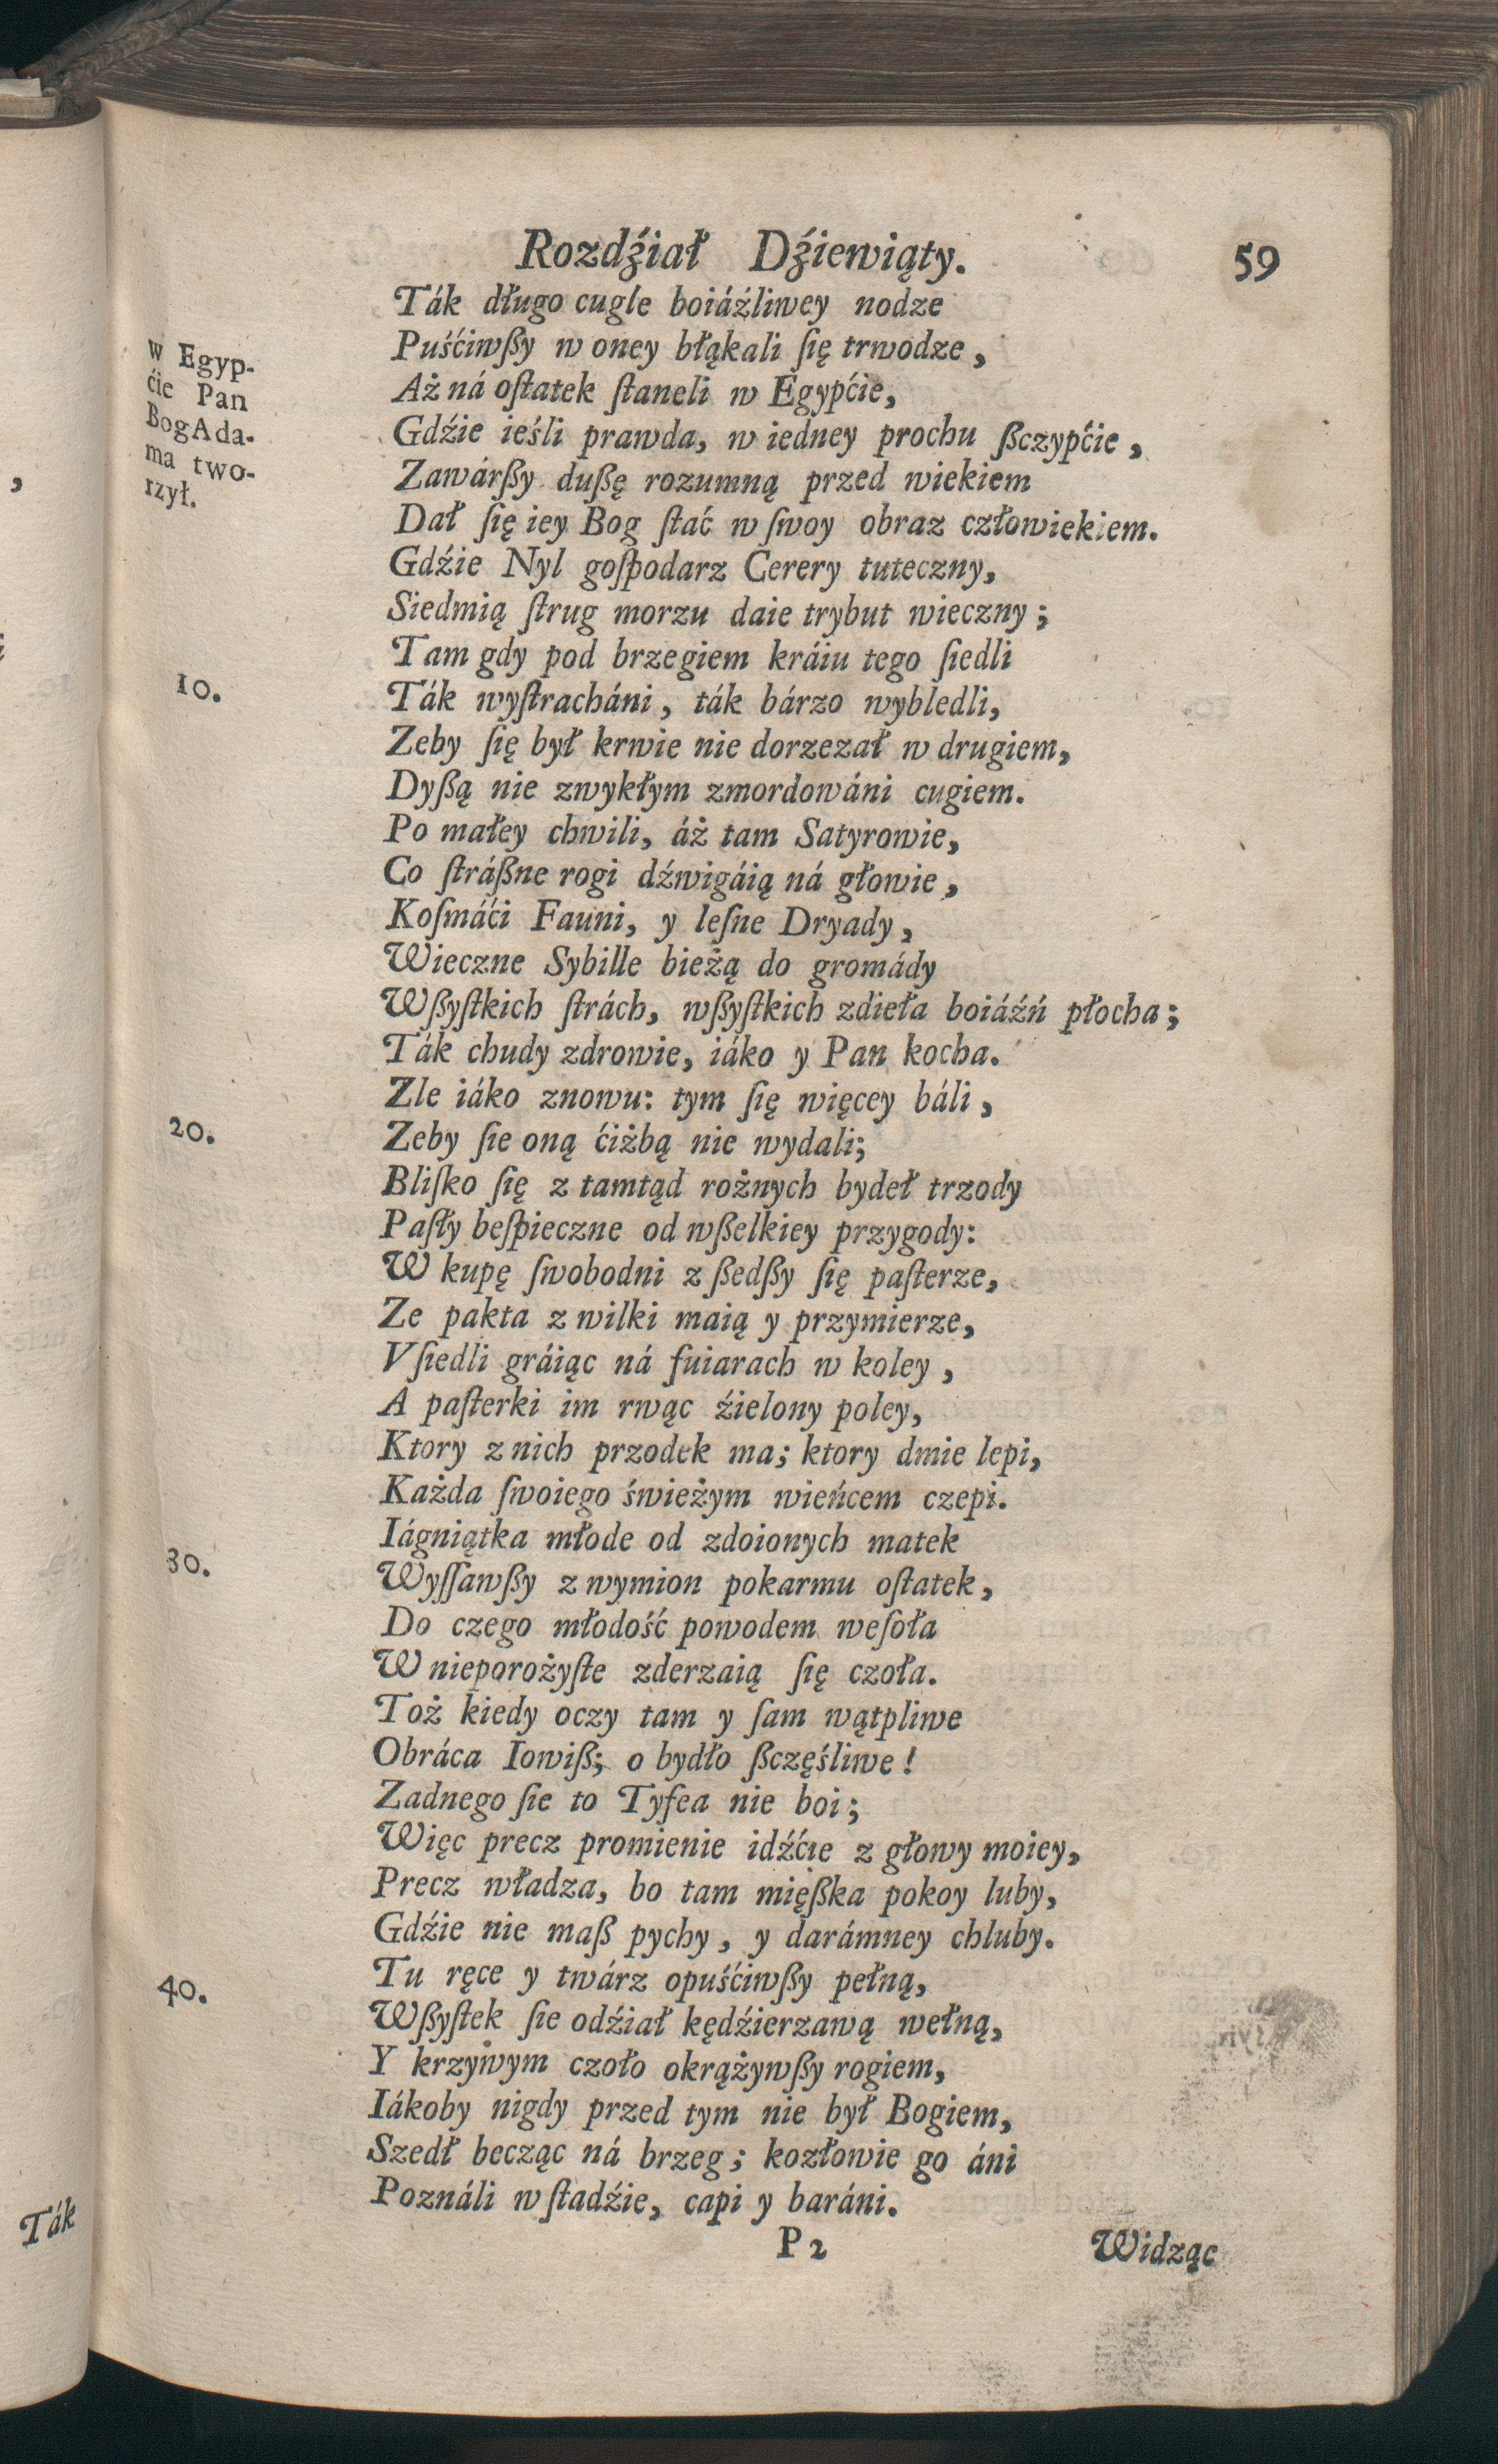 Rozdźiał Dźiewiąty. 59
Ták długo cugle boiáźliwey nodze
Puśćiwßy w oney błąkali ſię trwodze,
Aż ná oſtatek ſtaneli w Egypćie,
Gdźie ieśli prawda, w iedney prochu ßczypćie,
Zawárßy dußę rozumną przed wiekiem
Dał ſię iey Bog ſtać w ſwoy obraz człowiekiem.
Gdźie Nyl goſpodarz Cerery tuteczny,
Siedmią ſtrug morzu daie trybut wieczny;
Tam gdy pod brzegiem kráiu tego ſiedli
Ták wyſtracháni, ták bárzo wybledli,
Zeby ſię był krwie nie dorzezał w drugiem,
Dyßą nie zwykłym zmordowáni cugiem.
Po małey chwili, áż tam Satyrowie,
Co ſtráßne rogi dźwigáią ná głowie,
Koſmáći Fauni, y leſne Dryady,
Wieczne Sybille bieżą do gromády
Wßyſtkich ſtrách, wßyſtkich zdieła boiáźń płocha;
Ták chudy zdrowie, iáko y Pan kocha.
Zle iáko znowu: tym ſię więcey báli,
Zeby ſie oną ćiżbą nie wydali;
Bliſko ſię z tamtąd rożnych bydeł trzody
Paſły beſpieczne od wßelkiey przygody:
W kupę ſwobodni z ßedßy ſię paſterze,
Ze pakta z wilki maią y przymierze,
Vſiedli gráiąc ná fuiarach w koley,
A paſterki im rwąc źielony poley,
Ktory z nich przodek ma; ktory dmie lepi,
Każda ſwoiego świeżym wieńcem czepi.
Iágniątka młode od zdoionych matek
Wyſſawßy z wymion pokarmu oſtatek,
Do czego młodość powodem weſoła
W nieporożyſte zderzaią ſię czoła.
Toż kiedy oczy tam y ſam wątpliwe
Obráca Iowiß; o bydło ßczęśliwe!
Zadnego ſie to Tyfea nie boi;
Więc precz promienie idźćie z głowy moiey,
Precz władza, bo tam mięßka pokoy luby,
Gdźie nie maß pychy, y darámney chluby.
Tu ręce y twárz opuśćiwßy pełną,
Wßyſtek ſie odźiał kędźierzawą wełną,
Y krzywym czoło okrążywßy rogiem,
Iákoby nigdy przed tym nie był Bogiem,
Szedł becząc ná brzeg; kozłowie go áni
Poználi w ſtadźie, capi y baráni.
P 2 Widząc
W Egyp-
ćie Pan
Bog Ada-
ma two-
rzył.
10.
20.
30.
40.
Ták